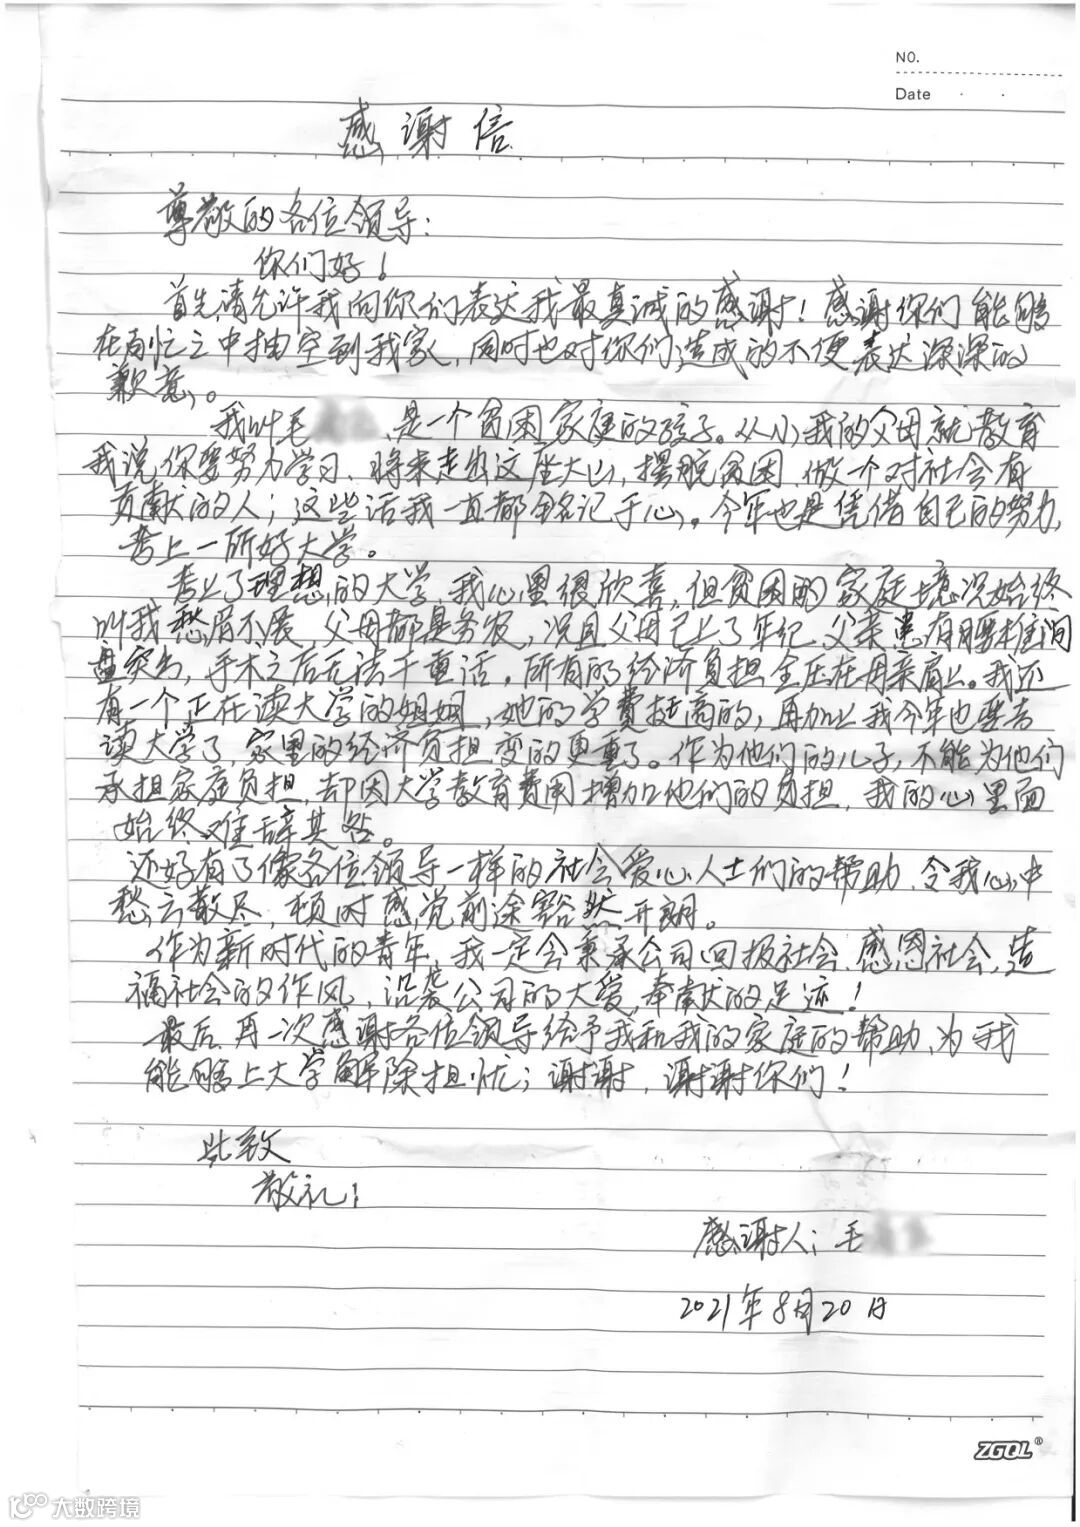 NO.
Date
感谢信
尊敬的各位领导:
你们好!
首先,请允许我向你们表达我最真诚的感谢!感谢你们能够
在百忙之中抽空到我家,同时也对你们造成的不便表达深深的
歉意。
我叫毛 是一个贫困家庭的孩子。从小我的父母就教育
我说你要努力学习、将来走出这座大山,摆脱贫困、做一个对社会有
贡献的人;这些话我一直都铭记于心。今年也是凭借自己的努力,
考上一所好大学。
考上了理想的大学,我心里很欣喜,但贫困的家庭境况始终
叫我愁眉不展,父母都是务农,况且父母已上了年纪、父亲患有腰椎间
盘突出,手术之后无法干重活,所有的经济负担全压在母亲肩上。我还
有一个正在读大学的姐姐,她的学费挺高的,再加上我今年也要去
读大学了,家里的经济负担变的更重了。作为他们的儿子,不能为他们
承担家庭负担,却因大学教育费用增加他们的负担,我的心里面
始终难辞其咎。
还好有了像各位领导一样的社会爱心人士们的帮助,令我心中
愁云散尽,顿时感觉前途豁然开朗。
作为新时代的青年,我一定会秉承公司回报社会、感恩社会,造
福社会的作风,沿袭公司的大爱,奉献的足迹!
最后,再一次感谢各位领导给予我和我的家庭的帮助、为我
能够上大学解除担忧;谢谢,谢谢你们!
此致
敬礼!
感谢人:毛
2021年8月20日
ZGQL®
大数跨境